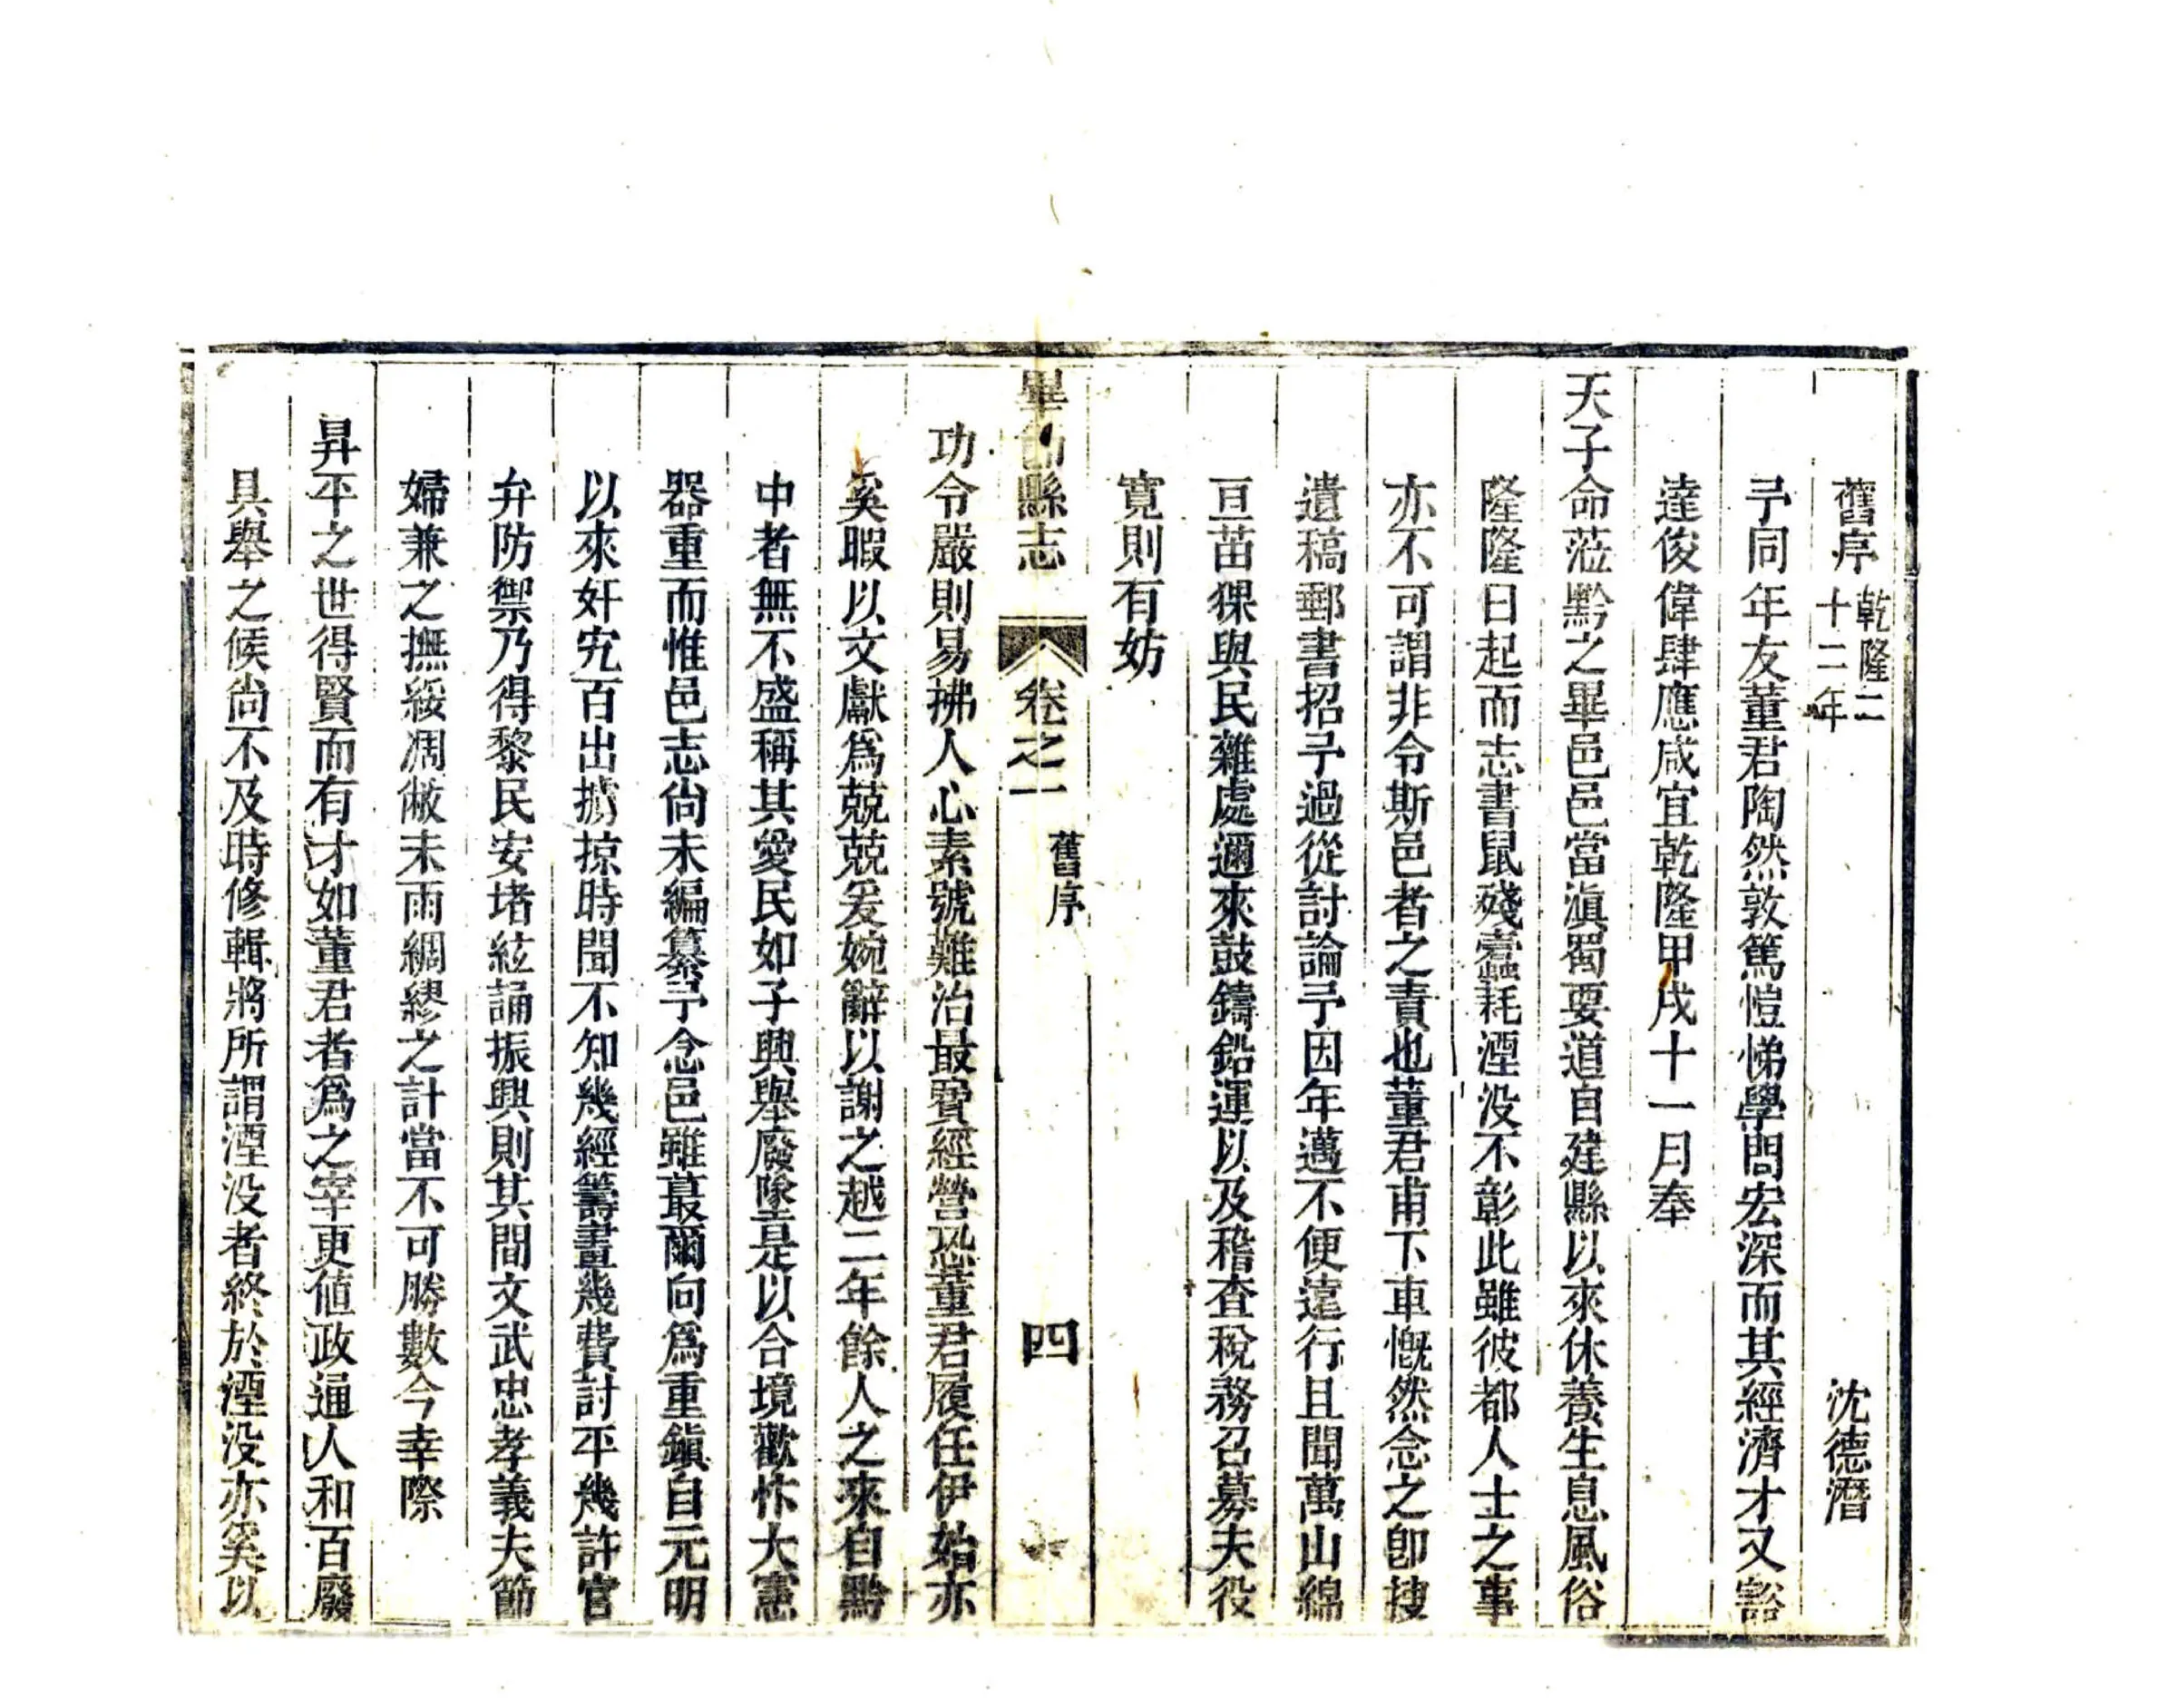 舊序 乾隆二十二年 沈德潛
予同年友董君陶然敦篤愷悌學問宏深而其經濟才又豁
達俊偉肆應咸宜乾隆甲戌十一月奉
天子命蒞黔之畢邑邑當滇蜀要道自建縣以來休養生息風俗
隆隆日起而志書鼠殘蠹耗湮没不彰此雖彼都人士之事
亦不可謂非令斯邑者之責也董君甫下車慨然念之卽捜
遺稿郵書招予過從討論予因年邁不便遠行且聞萬山綿
亘苗猓與民雜處邇來鼓鑄鉛運以及稽查稅務召募夫役
寬則有妨
畢節縣志 卷之一 舊序 四
功令嚴則易拂人心素號難治最費經營恐董君履任伊始亦
奚暇以文獻爲兢兢爰婉辭以謝之越二年餘人之來自黔
中者無不盛稱其愛民如子興舉廢墜是以合境歡忭大憲
器重而惟邑志尙未編纂予念邑雖蕞爾向爲重鎭自元明
以來奸宄百出擄掠時聞不知幾經籌畫幾費討平幾許官
弁防禦乃得黎民安堵絃誦振興則其間文武忠孝義夫節
婦兼之撫綏凋敝未雨綢繆之計當不可勝數今幸際
昇平之世得賢而有才如董君者爲之宰更値政通人和百廢
具舉之候尙不及時修輯將所謂湮没者終於湮没亦奚以